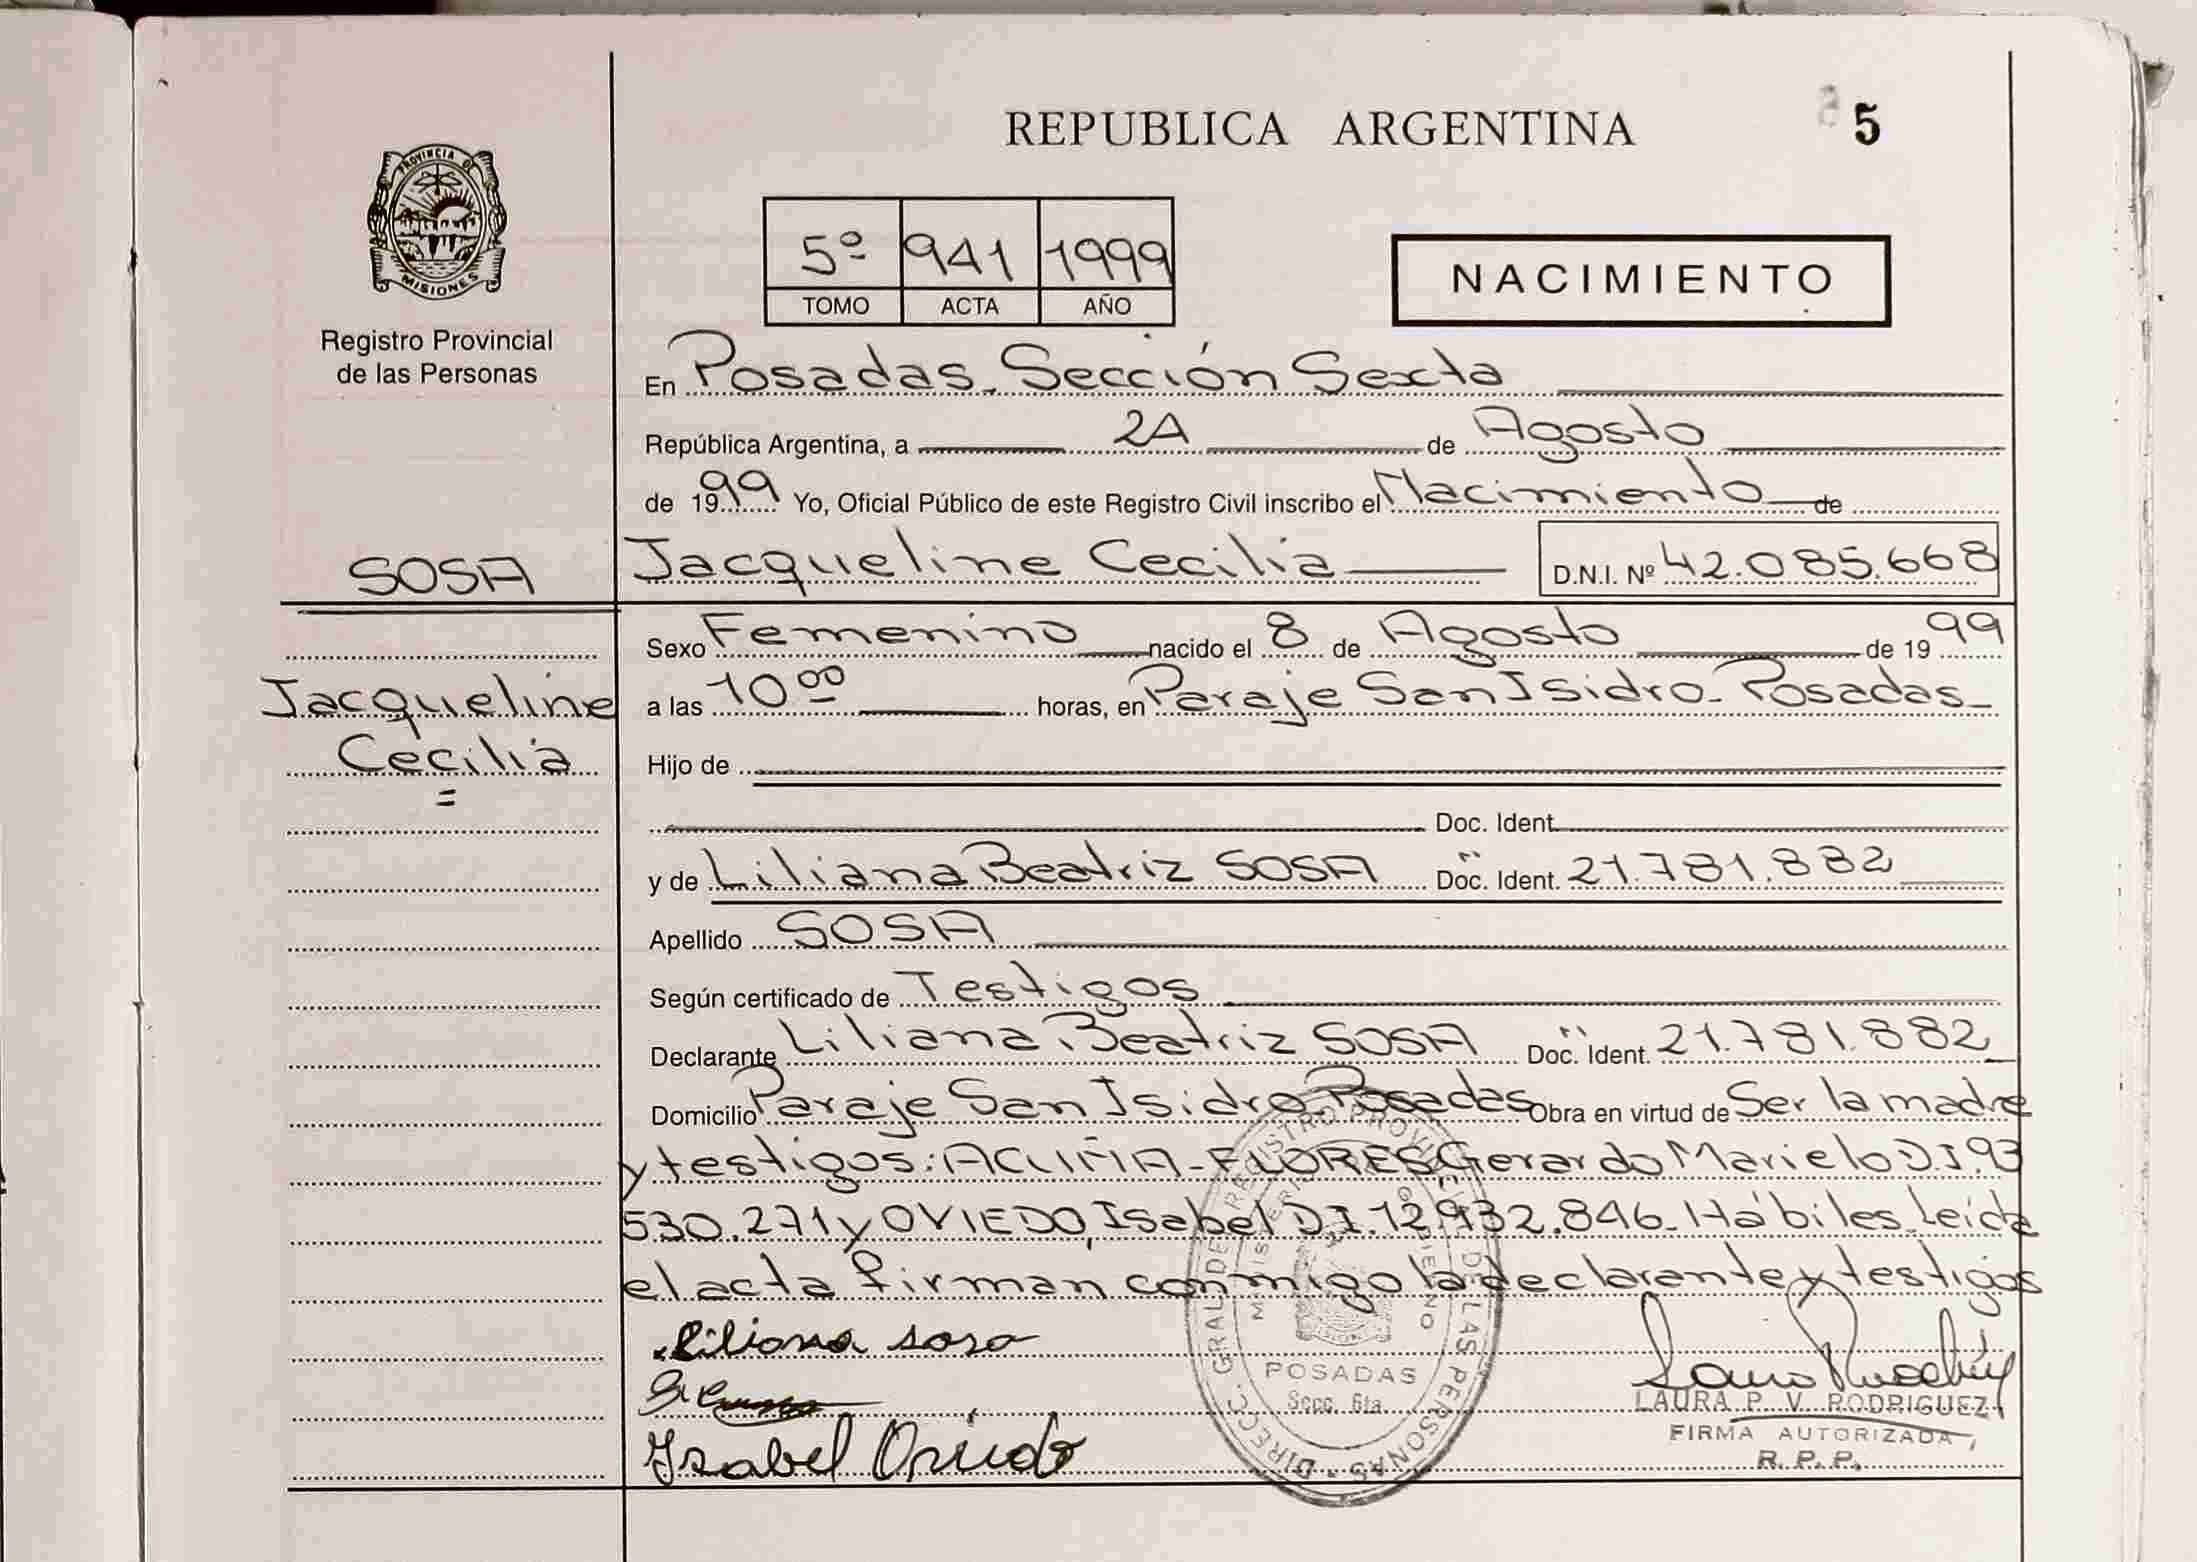 REPUBLICA ARGENTINA
5
PROVINCIA DE MISIONES
Registro Provincial
de las Personas
5º 941 1999
TOMO ACTA AÑO
NACIMIENTO
En Posadas. Sección Sexta
República Argentina, a 24 de Agosto
de 1999 Yo, Oficial Público de este Registro Civil inscribo el Nacimiento de
SOSA
Jacqueline Cecilia D.N.I. Nº 42.085.668
Jacqueline
Cecilia
Sexo Femenino nacido el 8 de Agosto de 1999
a las 10⁰⁰ horas, en Paraje San Isidro - Posadas
Hijo de
Doc. Ident.
y de Liliana Beatriz SOSA Doc. Ident. 21.781.882
Apellido SOSA
Según certificado de Testigos
Declarante Liliana Beatriz SOSA Doc. Ident. 21.781.882
Domicilio Paraje San Isidro Posadas Obra en virtud de Ser la madre
y testigos: ACUÑA - FLORES Gerardo Marielo D.I. 93
530.271 y OVIEDO, Isabel D.I. 12.932.846. Hábiles. Leída
el acta firman conmigo la declarante y testigos
Liliana Sosa
Isabel Oviedo
DIRECC. GRAL. DE REGISTRO PROVINCIAL DE LAS PERSONAS
MINISTERIO GOBIERNO
POSADAS
Secc. 6ta.
LAURA P. V. RODRIGUEZ
FIRMA AUTORIZADA
R. P. P.